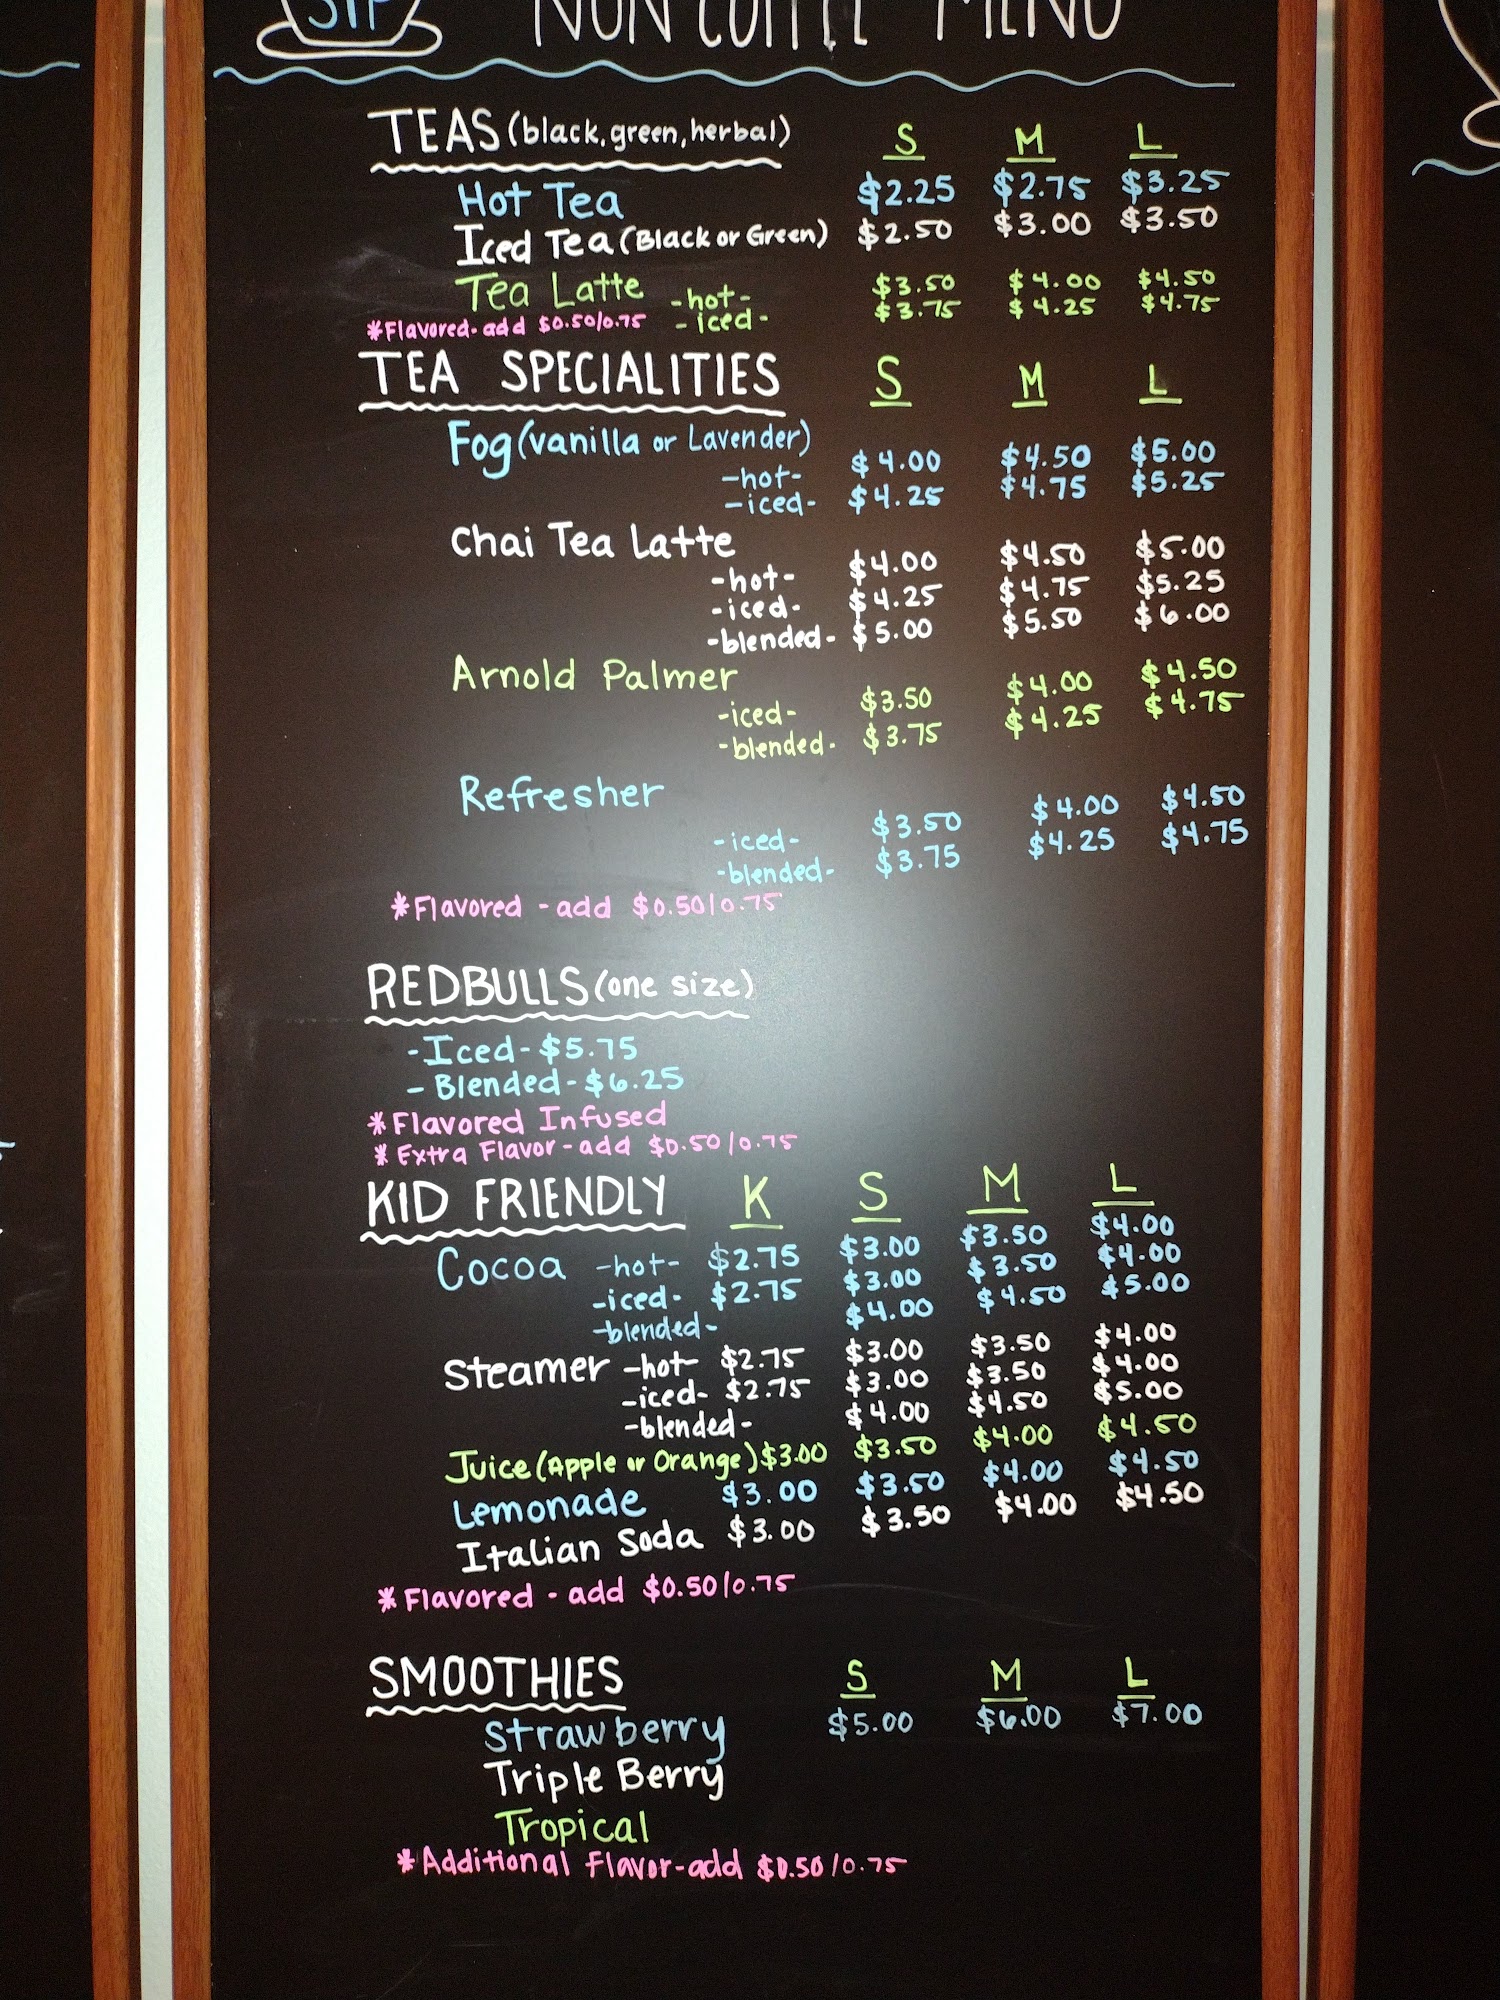 SIP NON COFFEE MENU
TEAS (black, green, herbal) S M L
Hot Tea $2.25 $2.75 $3.25
Iced Tea (Black or Green) $2.50 $3.00 $3.50
Tea Latte -hot- $3.50 $4.00 $4.50
-iced- $3.75 $4.25 $4.75
*Flavored-add $0.50/0.75
TEA SPECIALITIES S M L
Fog (vanilla or Lavender)
-hot- $4.00 $4.50 $5.00
-iced- $4.25 $4.75 $5.25
Chai Tea Latte
-hot- $4.00 $4.50 $5.00
-iced- $4.25 $4.75 $5.25
-blended- $5.00 $5.50 $6.00
Arnold Palmer
-iced- $3.50 $4.00 $4.50
-blended- $3.75 $4.25 $4.75
Refresher
-iced- $3.50 $4.00 $4.50
-blended- $3.75 $4.25 $4.75
*Flavored - add $0.50/0.75
REDBULLS (one size)
-Iced- $5.75
- Blended- $6.25
*Flavored Infused
* Extra Flavor - add $0.50/0.75
KID FRIENDLY K S M L
Cocoa -hot- $2.75 $3.00 $3.50 $4.00
-iced- $2.75 $3.00 $3.50 $4.00
-blended- $4.00 $4.50 $5.00
Steamer -hot- $2.75 $3.00 $3.50 $4.00
-iced- $2.75 $3.00 $3.50 $4.00
-blended- $4.00 $4.50 $5.00
Juice (Apple or Orange) $3.00 $3.50 $4.00 $4.50
Lemonade $3.00 $3.50 $4.00 $4.50
Italian Soda $3.00 $3.50 $4.00 $4.50
*Flavored - add $0.50/0.75
SMOOTHIES S M L
Strawberry $5.00 $6.00 $7.00
Triple Berry
Tropical
*Additional Flavor-add $0.50/0.75